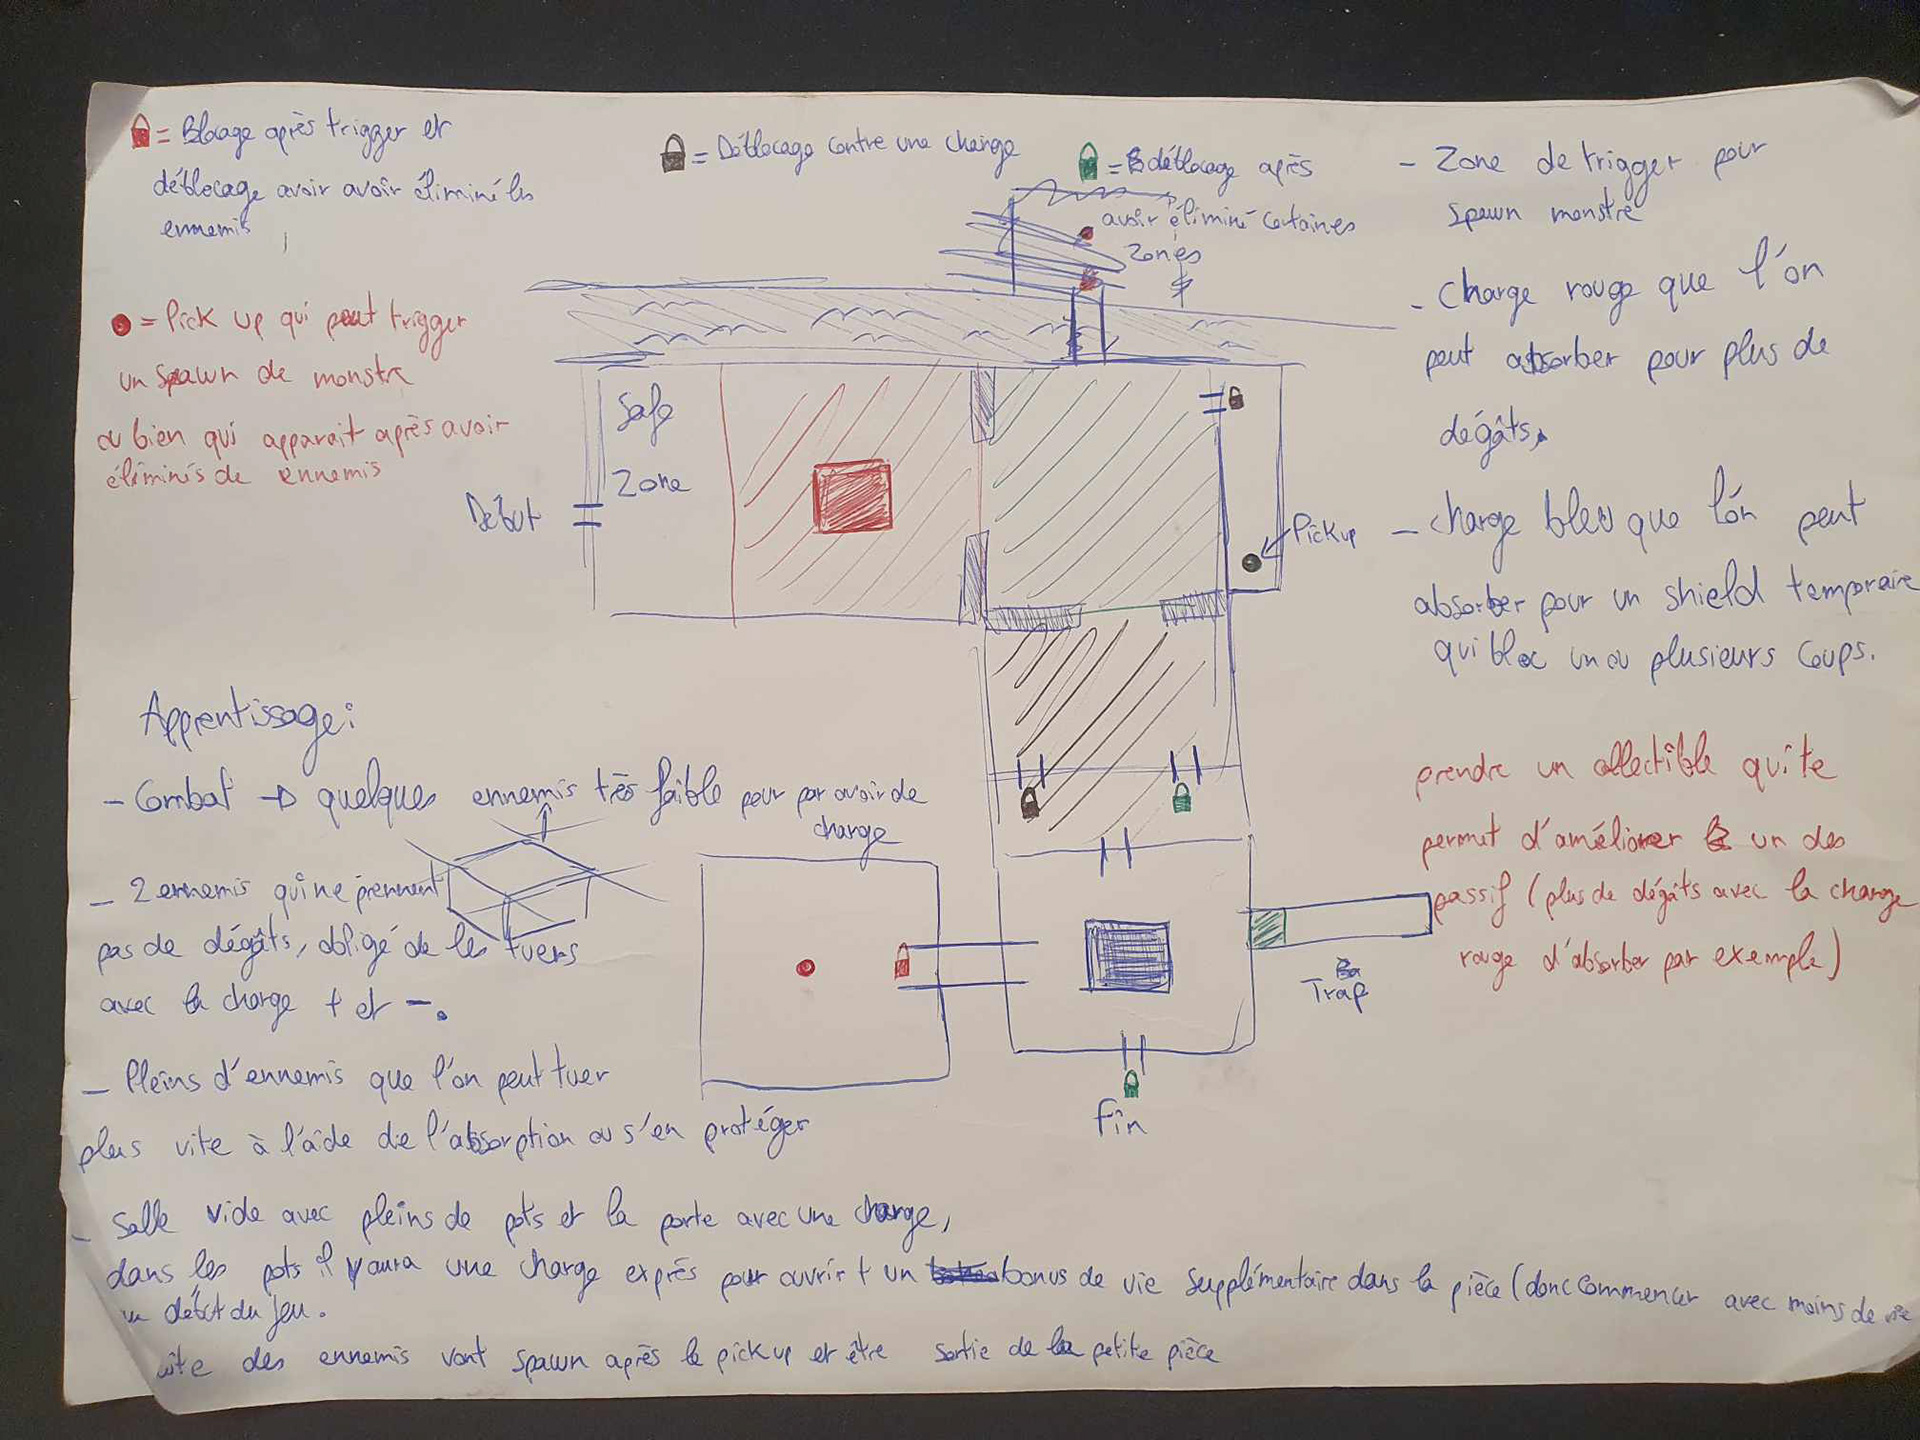 = Blocage après trigger et
déblocage avoir avoir éliminé les
ennemis
= Déblocage contre une charge
= déblocage après
avoir éliminé certaines
zones
● = Pick up qui peut trigger
un spawn de monstre
ou bien qui apparait après avoir
éliminés de ennemis
- Zone de trigger pour
spawn monstre
- Charge rouge que l'on
peut absorber pour plus de
dégâts.
- charge bleu que l'on peut
absorber pour un shield temporaire
qui bloc un ou plusieurs coups.
prendre un collectible qui te
permet d'améliorer un des
passif (plus de dégâts avec la charge
rouge d'absorber par exemple)
Safe
Zone
Début
Pickup
Trap
Fin
Apprentissage:
- Combat → quelques ennemis très faible pour par avoir de
charge
- 2 ennemis qui ne prennent
pas de dégâts, obligé de les tuers
avec la charge + et -.
- Pleins d'ennemis que l'on peut tuer
plus vite à l'aide de l'absorption ou s'en protéger
- Salle vide avec pleins de pots et la porte avec une charge,
dans les pots il y aura une charge exprès pour ouvrir + un bonus de vie supplémentaire dans la pièce (donc commencer avec moins de vie
début du jeu.
des ennemis vont spawn après le pick up et être sortie de la petite pièce